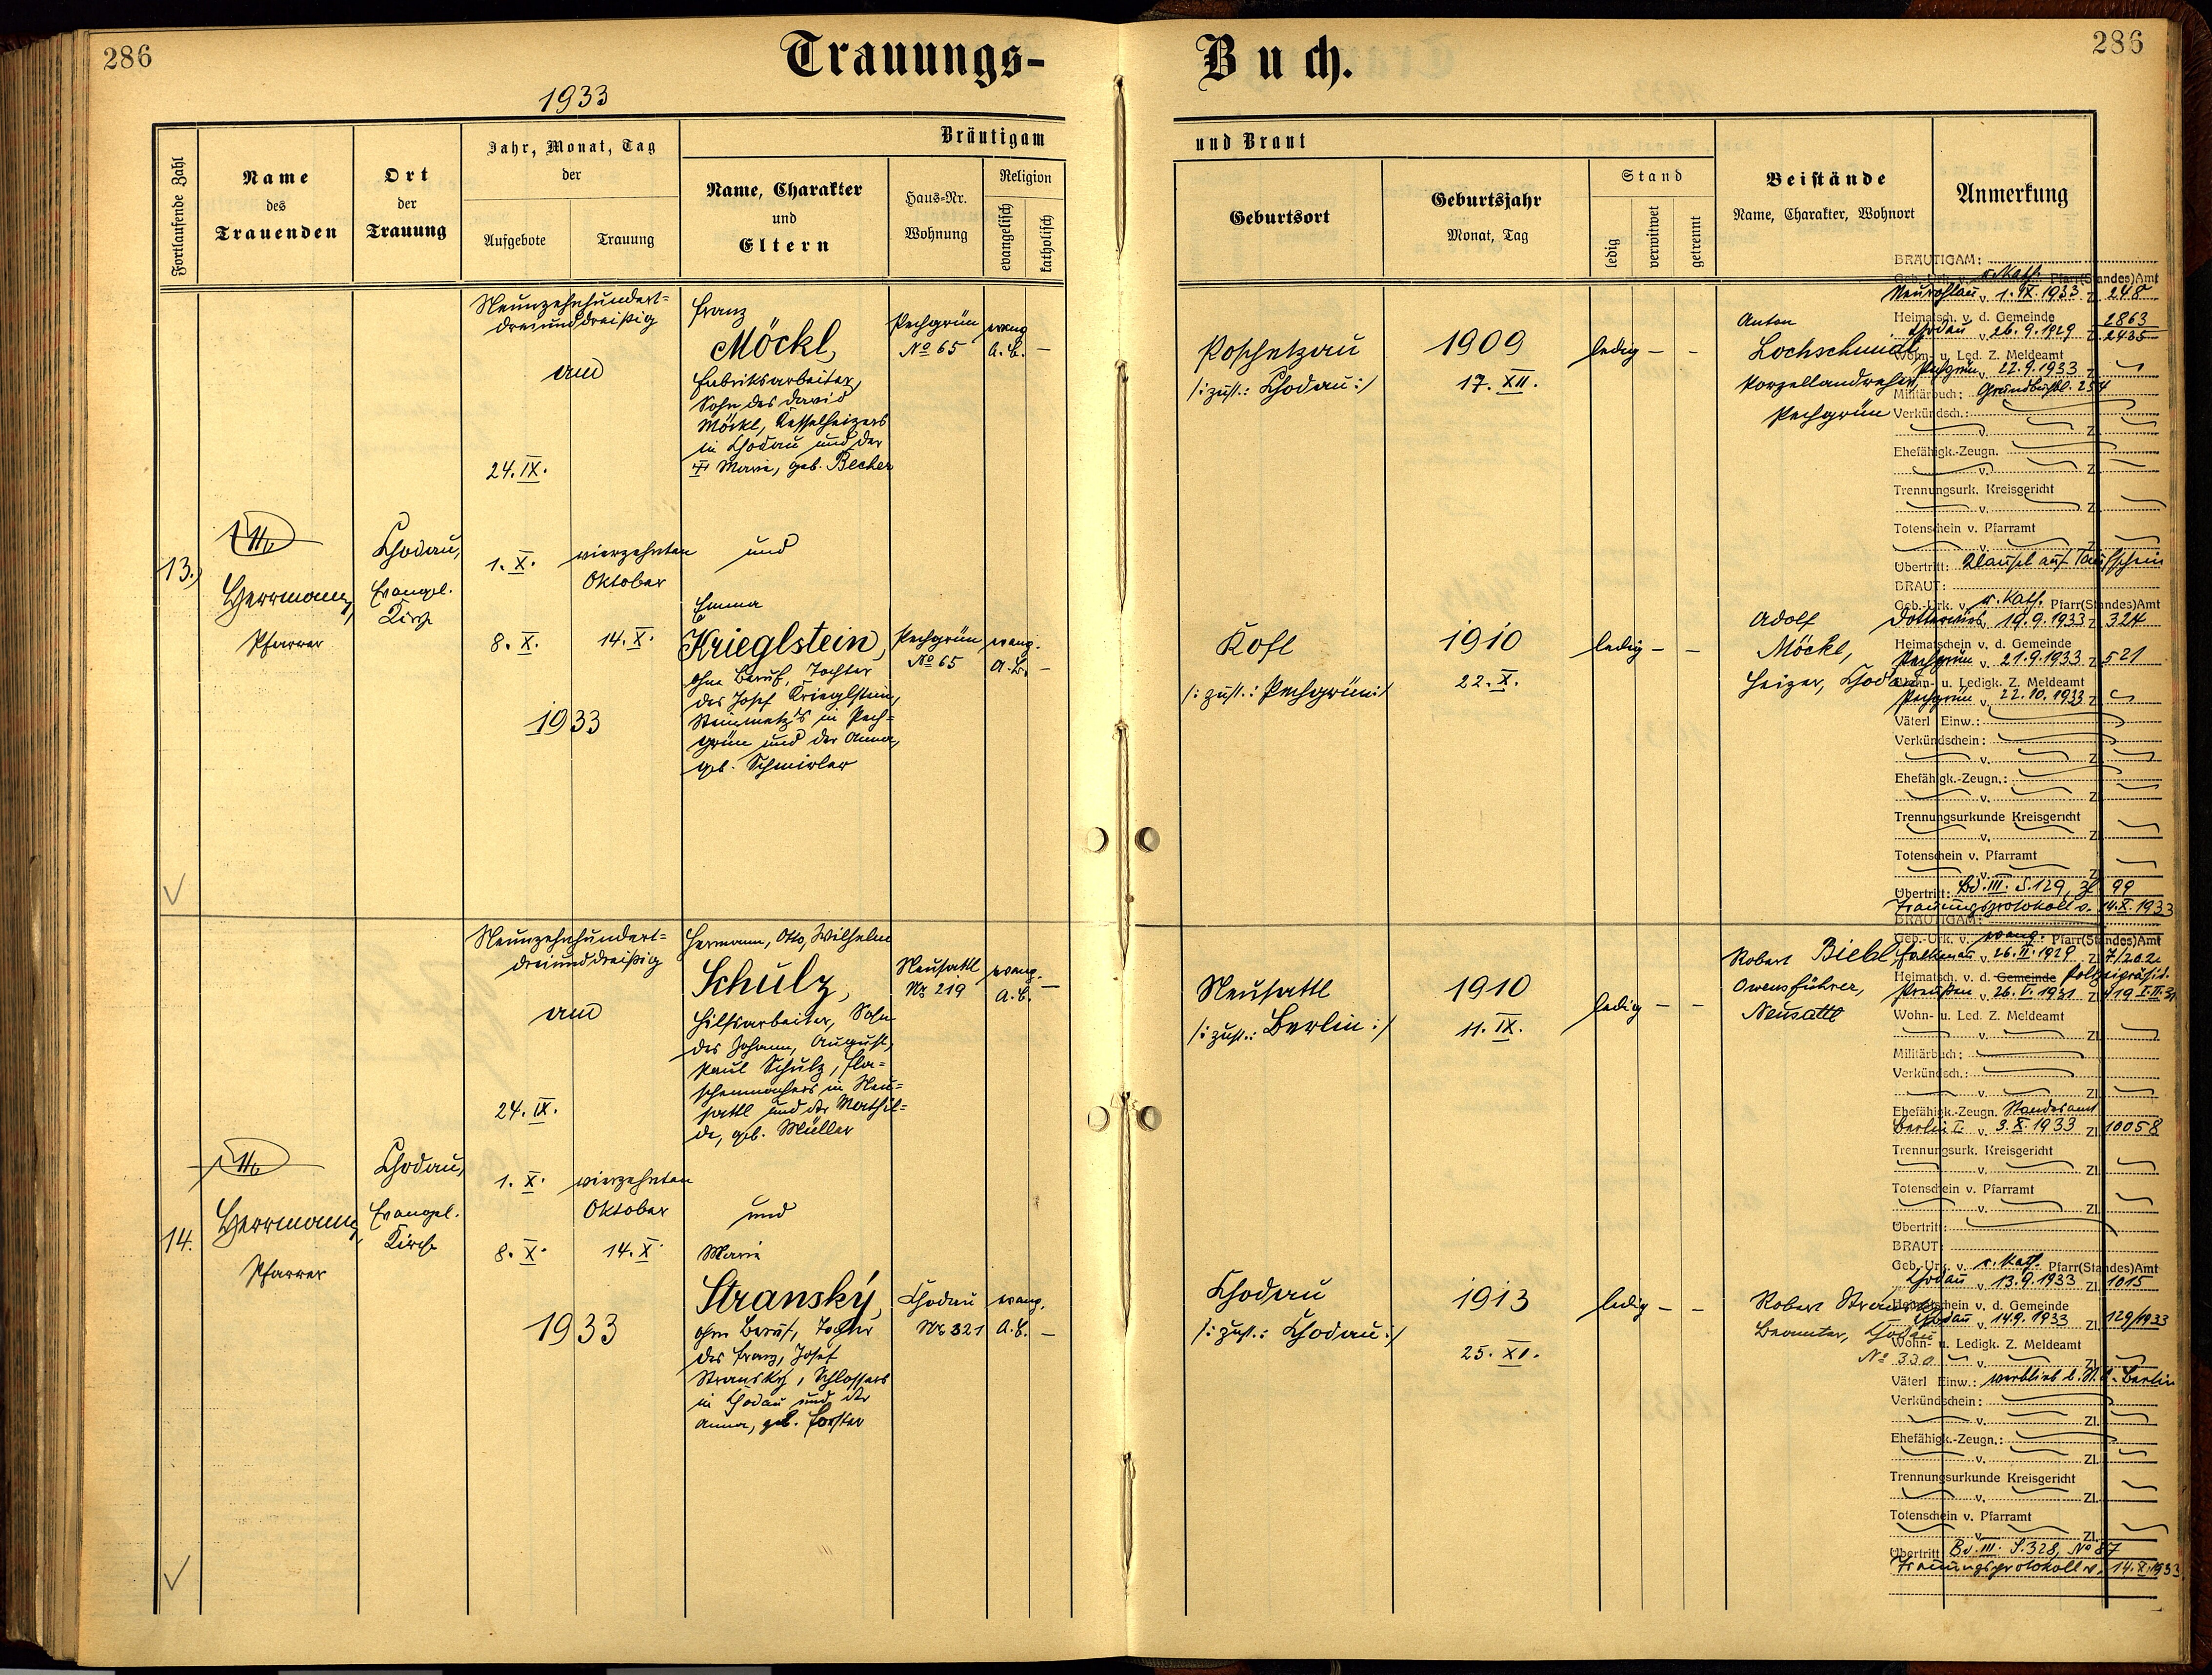 286
Trauungs-
Buch.
286
1933
Fortlaufende Zahl
Name
des
Trauenden
Ort
der
Trauung
Jahr, Monat, Tag
der
Aufgebote
Trauung
Bräutigam
Name, Charakter
und
Eltern
Haus-Nr.
Wohnung
Religion
evangelisch
katholisch
und Braut
Geburtsort
Geburtsjahr
Monat, Tag
Stand
ledig
verwitwet
getrennt
Beistände
Name, Charakter, Wohnort
Anmerkung
13.)
Herrmann,
Pfarrer
Chodau,
Evangel.
Kirche
Neunzehnhundert-
dreiunddreißig
am
24. IX.
1. X.
8. X.
vierzehnten
Oktober
14. X.
1933
Franz
Möckl,
Fabriksarbeiter,
Sohn des David
Möckl, Kesselheizers
in Chodau und der
Marie, geb. Becher
Pechgrün
No 65
evang.
A. B. –
und
Emma
Krieglstein,
ohne Beruf, Tochter
des Josef Krieglstein,
Steinmetz's in Pech-
grün und der Anna,
geb. Schmirler
Pechgrün
No 65
evang.
A. B. –
Poschetzau
/: zust.: Chodau :/
1909
17. XII.
ledig – –
Anton
Lochschmidt,
Porzellandreher,
Pechgrün
Kofl
/: zust.: Pechgrün :/
1910
22. X.
ledig – –
Adolf
Möckl,
Heizer, Chodau
BRÄUTIGAM:
Geb.-Urk. v. r. kath. Pfarr(Standes)Amt
Neurohlau v. 1. IX. 1933 Z. 248
Heimatsch. v. d. Gemeinde 2863
Chodau v. 26. 9. 1929 Z. 2435
Wohn- u. Led. Z. Meldeamt
Pechgrün v. 22. 9. 1933 Z.
Militärbuch: Grundbuchbl. 254
Verkündsch.:
v. Z.
Ehefähigk.-Zeugn.
v. Z.
Trennungsurk. Kreisgericht
v. Z.
Totenschein v. Pfarramt
v. Z.
Übertritt: Klausel auf Taufschein
BRAUT:
Geb.-Urk. v. r. kath. Pfarr(Standes)Amt
Dotterwies v. 19. 9. 1933 Z. 324
Heimatschein v. d. Gemeinde
Pechgrün v. 21. 9. 1933 Z. 521
Wohn- u. Ledigk. Z. Meldeamt
Pechgrün v. 22. 10. 1933 Z.
Väterl Einw.:
Verkündschein:
v. Z.
Ehefähigk.-Zeugn.:
v. Z.
Trennungsurkunde Kreisgericht
v. Z.
Totenschein v. Pfarramt
v. Z.
Übertritt: Bd. III. S. 129, Zl 99
Trauungsprotokoll v. 14. X. 1933
14.
Herrmann,
Pfarrer
Chodau,
Evangel.
Kirche
Neunzehnhundert-
dreiunddreißig
am
24. IX.
1. X.
8. X.
vierzehnten
Oktober
14. X.
1933
Hermann, Otto, Wilhelm
Schulz,
Hilfsarbeiter, Sohn
des Johann, August,
Paul Schulz, Fla-
schenmachers in Neu-
sattl und der Mathil-
de, geb. Müller
Neusattl
Nr. 219
evang.
A. B. –
und
Marie
Stranský,
ohne Beruf, Tochter
des Franz, Josef
Stranský, Schlossers
in Chodau und der
Anna, geb. Forster
Chodau
Nr. 321
evang.
A. B. –
Neusattl
/: zust.: Berlin :/
1910
11. IX.
ledig – –
Robert Biebl
Neusattl
Chodau
/: zust.: Chodau :/
1913
25. XI.
ledig – –
Robert Stranský
Beamter, Chodau
No 330
BRÄUTIGAM:
Geb.-Urk. v. evang. Pfarr(Standes)Amt
Falkenau v. 26. II. 1929 Z.
Heimatsch. v. d. Gemeinde
Preußen v. 26. V. 1931 Z.
Wohn- u. Led. Z. Meldeamt
v. Zl.
Militärbuch:
Verkündsch.:
v. Zl.
Ehefähigk.-Zeugn. Standesamt
Berlin I v. 3. X. 1933 Zl. 10058
Trennungsurk. Kreisgericht
v. Zl.
Totenschein v. Pfarramt
v. Zl.
Übertritt:
BRAUT:
Geb.-Urk. v. r. kath. Pfarr(Standes)Amt
Chodau v. 13. 9. 1933 Zl. 1015
Heimatschein v. d. Gemeinde
Chodau v. 14. 9. 1933 Zl. 129/1933
Wohn- u. Ledigk. Z. Meldeamt
v. Zl.
Väterl Einw.: verblieb b. St. A. Berlin
Verkündschein:
v. Zl.
Ehefähigk.-Zeugn.:
v. Zl.
Trennungsurkunde Kreisgericht
v. Zl.
Totenschein v. Pfarramt
v. Zl.
Übertritt Bd. III. S. 328, No 87
Trauungsprotokoll v. 14. X. 1933